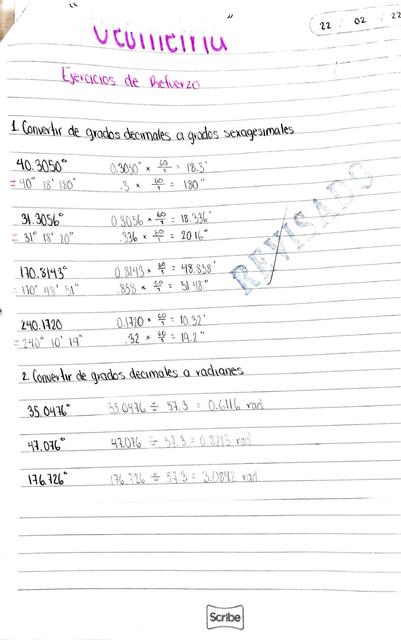 22 / 02 / 22
Geometria
Ejercicios de Refuerzo
1. Convertir de grados decimales a grados sexagesimales
40.3050° 0.3050° × 60/1 = 18.3'
= 40° 18' 180" .3 × 60/1 = 180"
31.3056° 0.3056 × 60/1 = 18.336'
= 31° 18' 20" .336 × 60/1 = 20.16"
170.8143° 0.8143 × 60/1 = 48.858'
= 170° 48' 51" .858 × 60/1 = 51.48"
240.1720 0.1720 × 60/1 = 10.32'
= 240° 10' 19" .32 × 60/1 = 19.2"
REVISADO
2. Convertir de grados decimales a radianes
35.0476° 35.0476 ÷ 57.3 = 0.6116 rad
47.076° 47.076 ÷ 57.3 = 0.8215 rad
176.726° 176.726 ÷ 57.3 = 3.0842 rad
Scribe